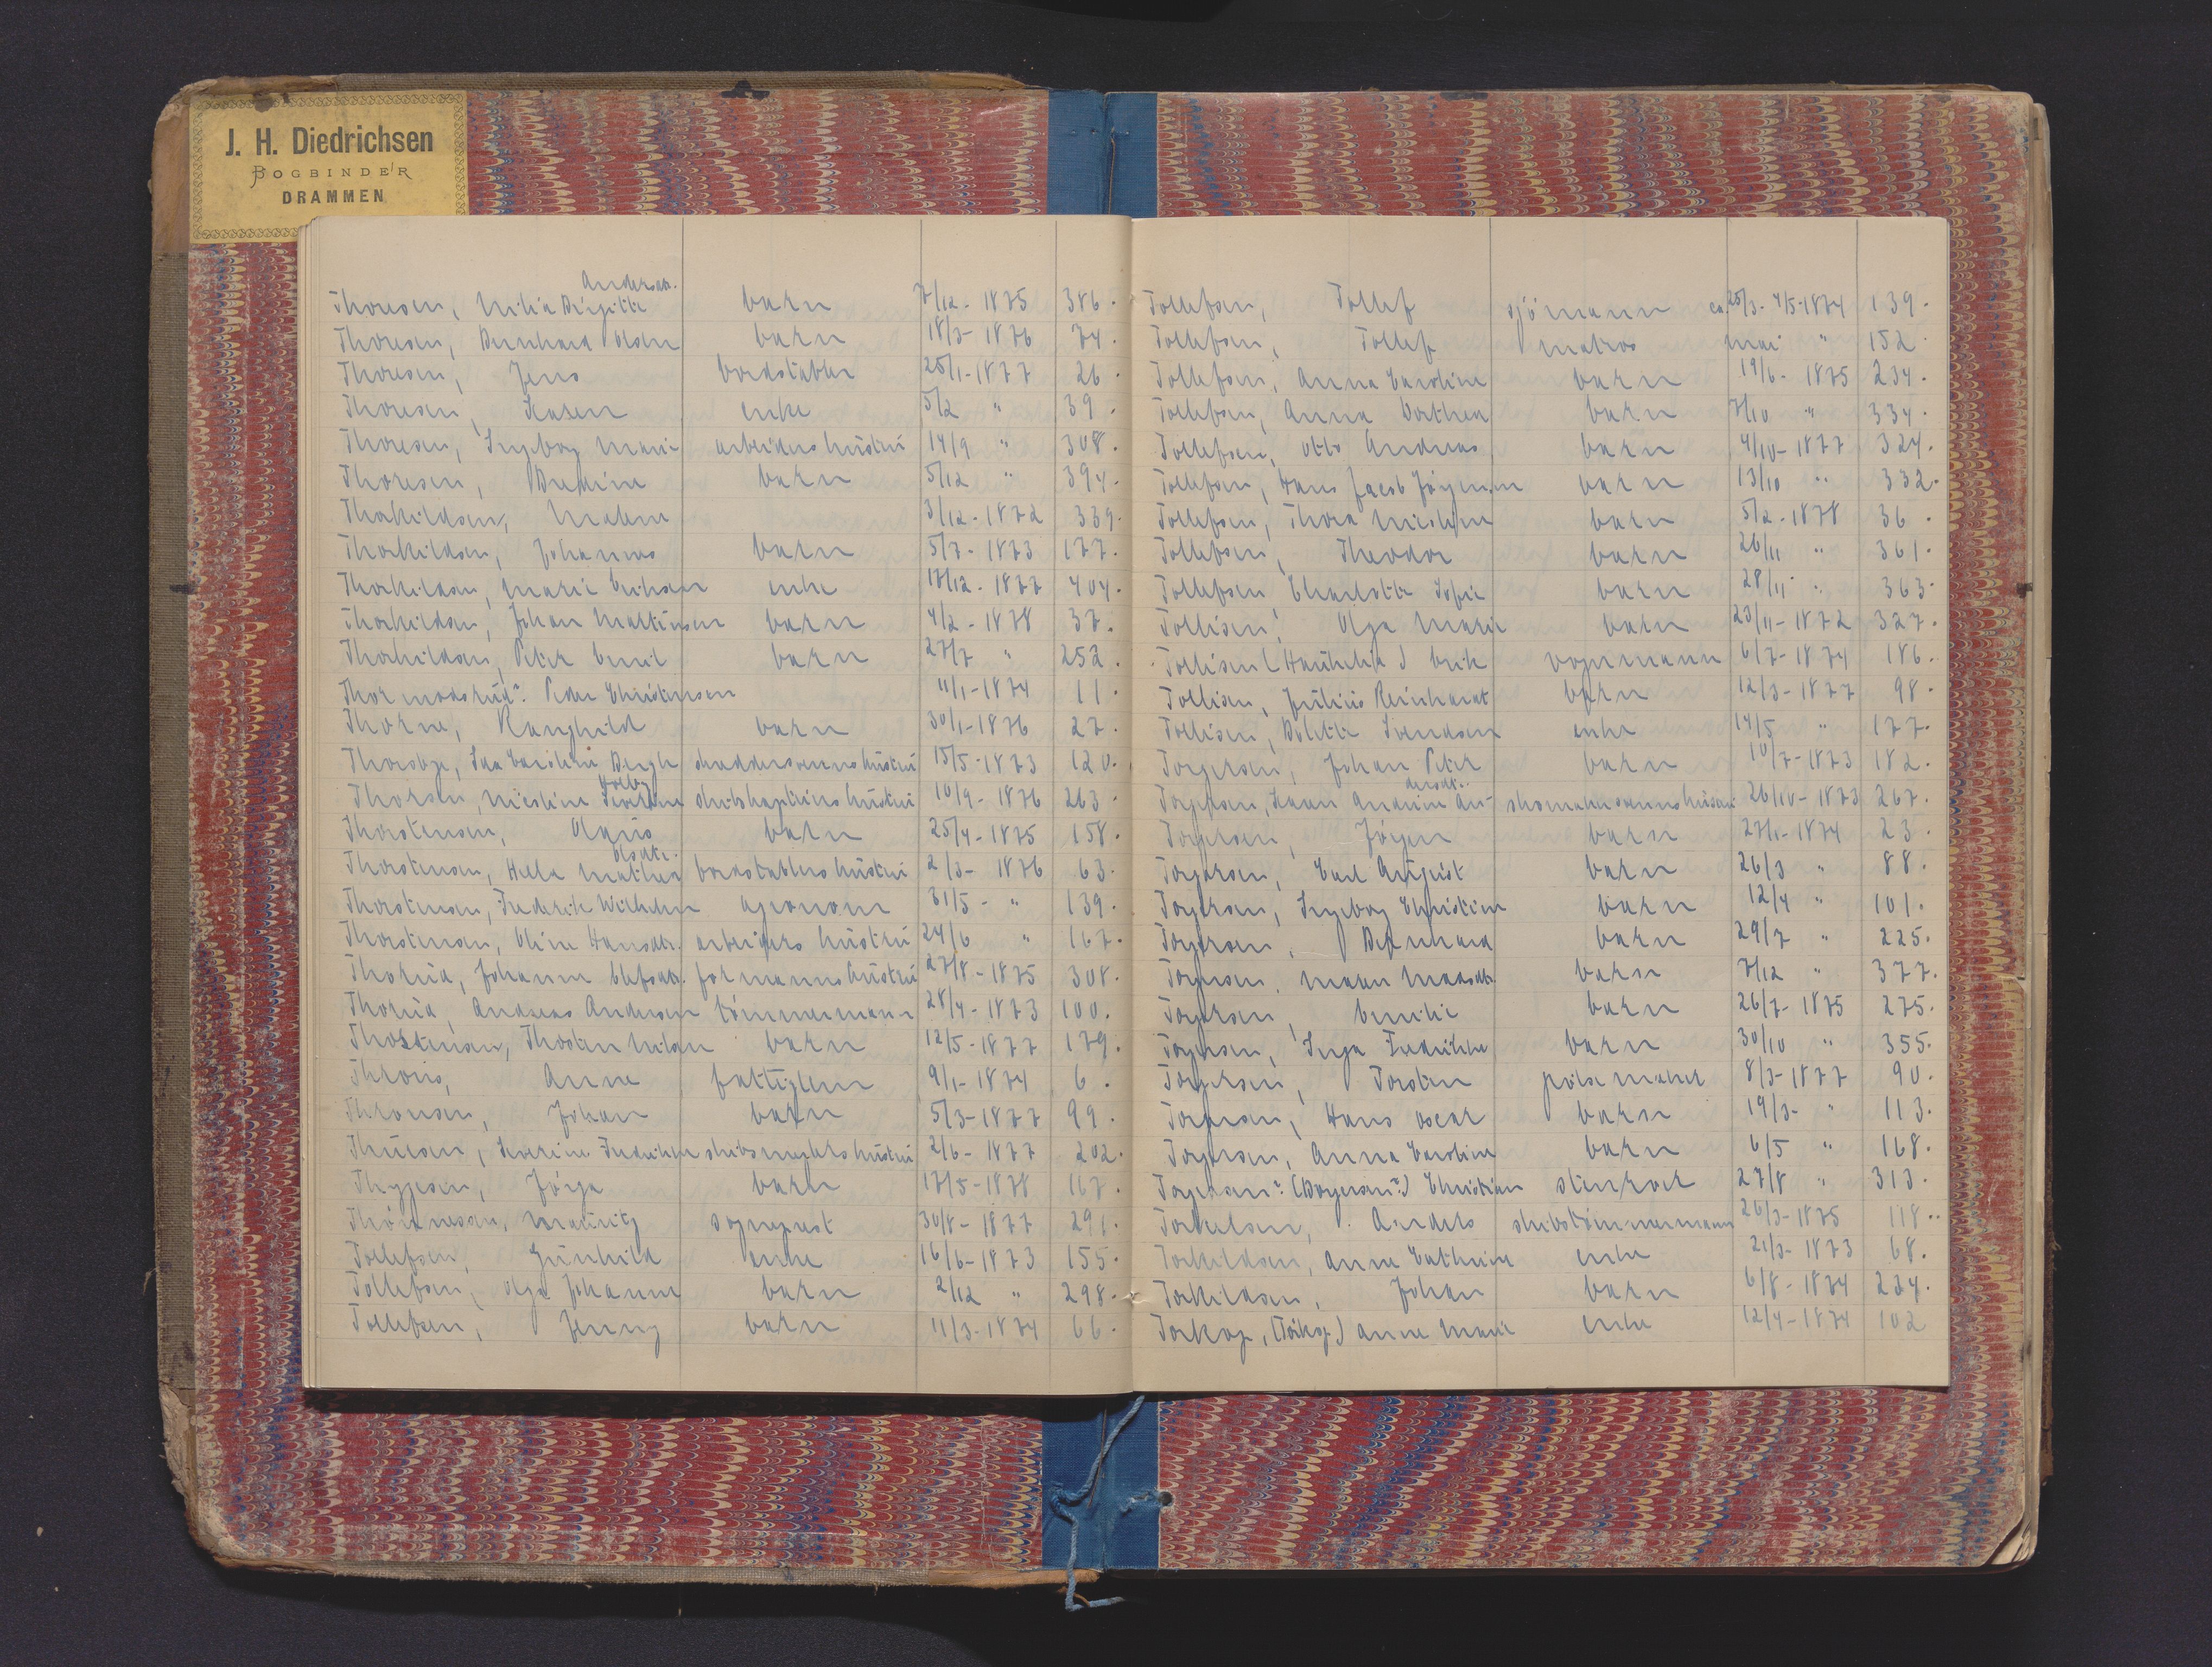 J. H. Diedrichsen
BOGBINDER
DRAMMEN
Andersdtr.
Thoresen, Milia Birgitte barn 7/12-1875 386.
Thoresen, Bernhard Olsen barn 18/3-1876 74.
Thoresen, Jens bordstabler 25/1-1877 26.
Thoresen, Karen enke 5/2 " 39.
Thoresen, Ingborg Marie arbeiders hústrú 14/9 " 308.
Thoresen, barn 5/12 " 394.
Thorkildsen, Malene 3/12-1872 339.
Thorkildsen, Johannes barn 5/7-1873 177.
Thorkildsen, Marie Eriksen enke 17/12-1877 404.
Thorkildsen, Johan Martinsen barn 4/2-1878 37.
Thorkildsen, Peter Emil barn 27/7 " 252.
Thormodsrúd?. Peder Christensen 11/1-1874 11.
Thorne, Ranghild barn 30/1-1876 27.
Thorsby, Ida Caroline Bergh skreddersvenns hústrú 15/5-1873 120.
Holby
Thorsen, Nicoline skibskapteins hústrú 10/9-1876 263.
Thorstensen, Olaús barn 25/4-1875 158.
Olsdtr.
Thorstensen, Helle Mathea bordstablers hústrú 2/3-1876 63.
Thorstensen, Frederik Wilhelm agronom 31/5- " 139.
Thorstensen, Oline Hansdtr. arbeiders hústrú 24/6 " 167.
Thorúd, Johanne Olefsdtr. formanns hústrú 27/8-1875 308.
Thorúd, Andreas Andersen tömmermann 28/4-1873 100.
Thostensen, Thosten Nilsen barn 12/5-1877 179.
Throns, Anne fattiglem 9/1-1874 6.
Thronsen, Johan barn 5/3-1877 99.
Thúesen, Severine Fredrikke skibsmeglers hústrú 2/6-1877 202.
Thygesen, Jörga barn 17/5-1878 167.
Thönnesen, Maúritz sogneprest 30/8-1877 291.
Tollefsen, Gúnhild enke 16/6-1873 155.
Tollefsen, Olga Johanne barn 2/12 " 298.
Tollefsen, Jenny barn 11/3-1874 66.
Tollefsen, Tollef sjömann ca. 25/3-4/5-1874 139.
Tollefsen, Tollef matros mai " 152.
Tollefsen, Anna Caroline barn 19/6-1875 234.
Tollefsen, Anna Dorthea barn 7/10 " 334.
Tollefsen, Otto Andreas barn 4/10-1877 324.
Tollefsen, Hans Jacob Jörgensen barn 13/10 " 332.
Tollefsen, Thora Nicoline barn 5/2-1878 36.
Tollefsen, Theodor barn 26/11 " 361.
Tollefsen, Charlotte Sofie barn 28/11 " 363.
Tollisen, Olga Marie barn 23/11-1872 327.
Tollisen ( ) Erik vognmann 6/7-1874 186.
Tollisen, Júliús Reinhardt barn 12/3-1877 98.
Tollisen, Bolette Svendsen enke 14/5 " 177.
Torgersen, Johan Peter barn 10/7-1873 182.
dersdtr.
Torgersen, Karen Andrine An- skomakersvenns hústrú 26/10-1873 267.
Torgersen, Jörgen barn 27/1-1874 23.
Torgersen, Carl Aúgúst barn 26/3 " 88.
Torgersen, Ingborg Christine barn 12/4 " 101.
Torgersen, Bernhard barn 29/7 " 225.
Torgersen, Maren Madsdtr. barn 7/12 " 377.
Torgersen, Emilie barn 26/7-1875 275.
Torgersen, Inga Fredrikke barn 30/10 " 355.
Torgersen, Torsten pölsemaker 8/3-1877 90.
Torgersen, Hans Oscar barn 19/3- " 113.
Torgersen, Anna Caroline barn 6/5 " 168.
Torgersen?. (Borgersen?) Christian 27/8 " 313.
Torkelsen, Anders skibstömmermann 26/3-1875 118.
Torkildsen, Anne Cathrine enke 21/3-1873 68.
Torkildsen, Johan barn 6/8-1874 224.
Torkop, (Toikop) Anne Marie enke 12/4-1874 102